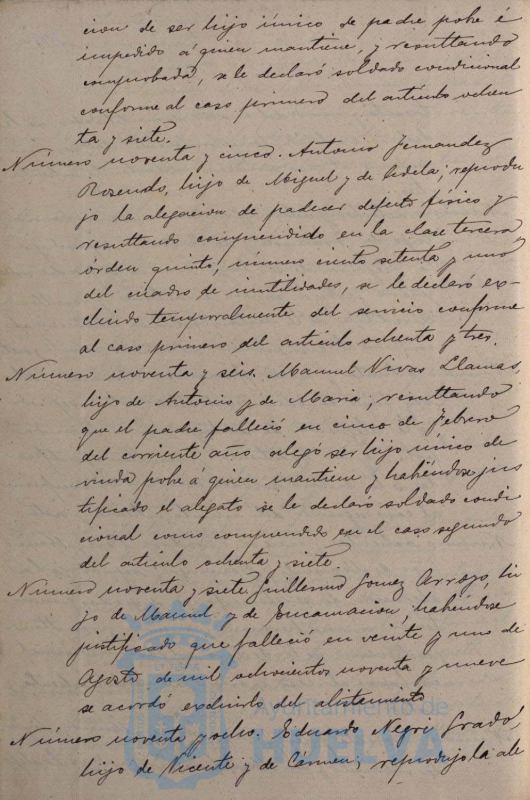 cion de ser hijo único de padre pobre é
impedido á quien mantiene, y resultando
comprobada, se le declaró soldado condicional
conforme al caso primero del artículo ochen
ta y siete.
Número noventa y cinco. Antonio Fernandez
Rosendo, hijo de Miguel y de Fidela; reprodu
jo la alegacion de padecer defecto fisico y
resultando comprendido en la clase tercera,
órden quinto, número ciento setenta y uno
del cuadro de inutilidades, se le declaró ex-
cluido temporalmente del servicio conforme
al caso primero del artículo ochenta y tres.
Número noventa y seis. Manuel Vivas Llamas,
hijo de Antonio y de Maria; resultando
que el padre falleció en cinco de Febrero
del corriente año alegó ser hijo único de
viuda pobre á quien mantiene y habiéndose jus
tificado el alegato se le declaró soldado condi
cional como comprendido en el caso segundo
del artículo ochenta y siete.
Número noventa y siete. Guillermo Gomez Arroyo, hi
jo de Manuel y de Encarnacion, habiéndose
justificado que falleció en veinte y uno de
Agosto de mil ochocientos noventa y nueve
se acordó excluirlo del alistamiento
Número noventa y ocho. Eduardo Negri Grado,
hijo de Vicente y de Cármen; reprodujo la ale
Ayuntamiento de
HUELVA